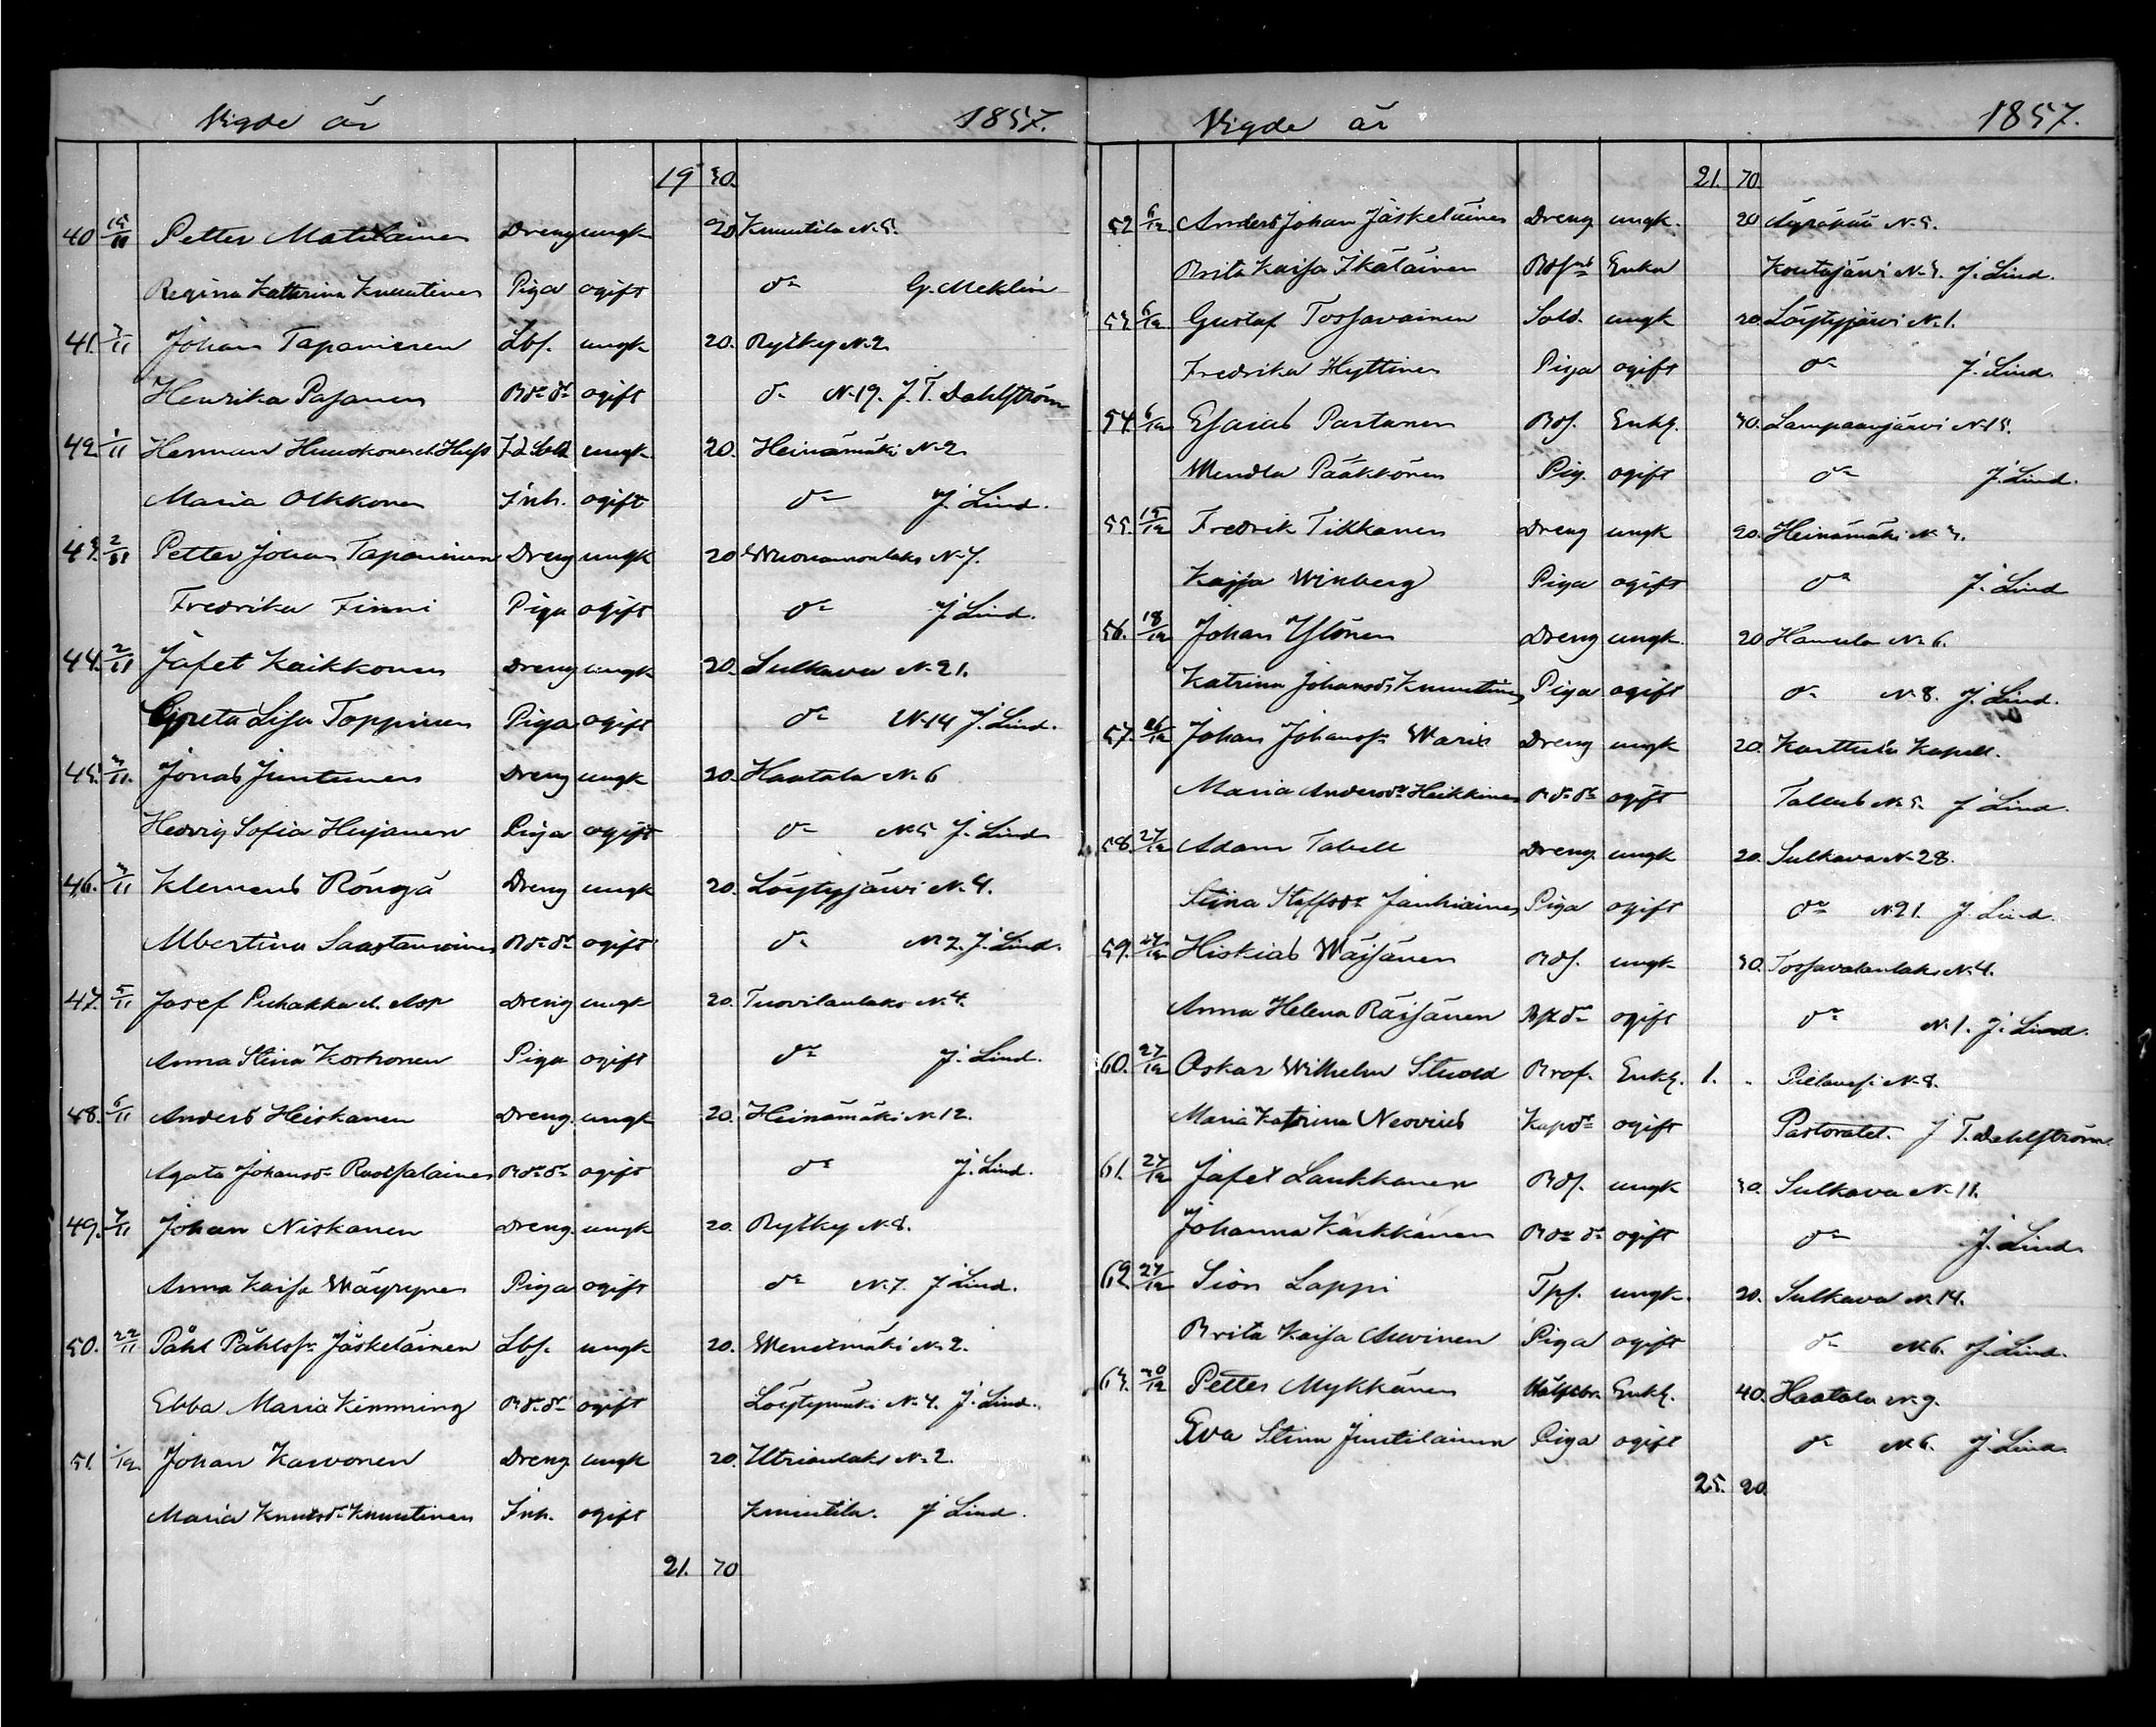 Vigde år 1857.
19 30.
40 15/11 Petter Matilainen Dreng ungk 20 Knuutila N. 5.
Regina Katharina Knuutinen Piga ogift do G. Meklin
41. /11 Johan Tapaninen Lbf. ungk 20. Rytky N. 2
Henrika Pasanen Bdedr ogift do N. 19. J. T. Dahlström
42 1/11 Herman Huuskonen ungk 20. Heinämäki N. 2
Maria Olkkonen Inh. ogift do J. Lind.
43. 2/11 Petter Johan Tapaninen Dreng ungk 20 N. 7.
Fredrika Finni Piga ogift do J. Lind.
44. 2/11 Jafet Kaikkonen Dreng ungk 20. Sulkava N. 21.
Greta Lisa Toppinen Piga ogift do N. 14 J. Lind.
45. 3/11. Jonas Juntunen Dreng ungk 20. Haatala N. 6
Hedvig Sofia Hujanen Piga ogift do N. 5 J. Lind
46. 3/11 Klemens Röngä Dreng ungk 20. Löytyjärvi N. 4.
Albertina Saastamoinen Bdedr ogift do N. 2. J. Lind.
47. 5/11 Josef Puhakka d. Asp Dreng ungk 20. Tuovilanlaks N. 4.
Anna Stina Korhonen Piga ogift do J. Lind.
48. 6/11 Anders Heiskanen Dreng. ungk 20. Heinämäki N. 12.
Agata Johansdr Ruotsalainen Bdedr ogift do J. Lind.
49. 7/11 Johan Niskanen Dreng. ungk 20. Rytky N. 8.
Anna Kaisa Wäyrynen Piga ogift do N. 7. J. Lind.
50. 22/11 Påhl Påhlsson Jäskeläinen Lbf. ungk 20. Wenetmäki N. 2.
Ebba Maria Kimming Bdedr ogift Löytynmäki N. 4. J. Lind.
51. 1/12. Johan Karvonen Dreng ungk 20. Utrianlaks N. 2.
Maria Knutsdr Knuutinen Inh. ogift Knuutila. J Lind.
21. 70
Vigde år 1857.
21. 70.
52 6/12. Anders Johan Jäskeläinen Dreng ungk. 20 Äyräpää N. 5.
Brita Kaisa Ikäläinen Enka Koutajärvi N. 3. J. Lind.
53. 6/12 Gustaf Tossavainen Sold. ungk 20 Löytyjärvi N. 1.
Fredrika Hyttinen Piga ogift do J. Lind.
54. 6/12 Esaias Partanen Bdf. Enkl. 30. Lampaanjärvi N. 15.
Wendla Pääkkönen Pig. ogift do J. Lind.
55. 15/12 Fredrik Tikkanen Dreng ungk 20. Heinämäki N. 3.
Kajsa Winberg Piga ogift do J. Lind
56. 18/12 Johan Ylönen Dreng ungk. 20 Hamula N. 6.
Katrina Johansdr Knuutinen Piga ogift do N. 8. J. Lind.
57. 26/12 Johan Johansson Waris Dreng ungk 20. Karttula Kapell.
Maria Andersdr Heikkinen Bdedr ogift Tallus N. 5. J Lind.
58. 27/12 Adam Tabell Dreng. ungk 20. Sulkava N. 28.
Stina Staffsdr Jauhiainen Piga ogift do N. 21. J. Lind.
59. 27/12 Hiskias Wäisänen Bdf. ungk 30. Tossavalanlaks N. 4.
Anna Helena Räisänen ogift do N. 1. J. Lind.
60. 27/12 Oskar Wilhelm Stuold Prof. Enkl. 1. - Pielavesi N. 8.
Maria Katrina Neovius Kapdr ogift Pastoratet. J T. Dahlström.
61. 27/12 Jafet Laukkanen Bdf. ungk 30. Sulkava N. 11.
Johanna Kärkkänen Bdedr ogift do J. Lind.
62 27/12 Sion Lappi Tpf. ungk. 20. Sulkava N. 14.
Brita Kaisa Auvinen Piga ogift do N. 6. J. Lind.
63. 30/12 Petter Mykkänen Enkl. 40. Haatala N. 9.
Eva Stina Juutilainen Piga ogift do N. 6. J Lind.
25. 20